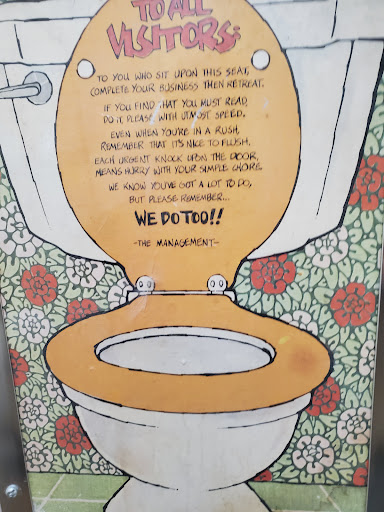 TO ALL
VISITORS:
TO YOU WHO SIT UPON THIS SEAT,
COMPLETE YOUR BUSINESS THEN RETREAT.
IF YOU FIND THAT YOU MUST READ,
DO IT, PLEASE WITH UTMOST SPEED.
EVEN WHEN YOU'RE IN A RUSH,
REMEMBER THAT IT'S NICE TO FLUSH.
EACH URGENT KNOCK UPON THE DOOR,
MEANS HURRY WITH YOUR SIMPLE CHORE.
WE KNOW YOU'VE GOT A LOT TO DO,
BUT PLEASE REMEMBER...
WE DO TOO!!
-THE MANAGEMENT-